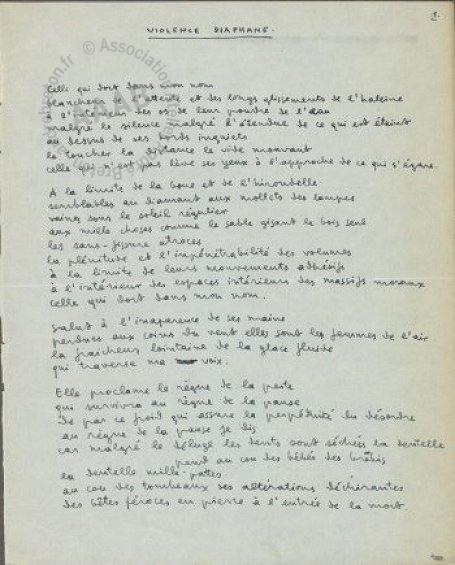 1.
VIOLENCE DIAPHANE.
Celle qui dort dans mon nom
blancheur de l'attente et des longs glissements de l'haleine
à l'intérieur des os de leur poudre de l'eau
malgré le silence malgré l'étendue de ce qui est éteint
au dessus de ses bords inquiets
le toucher la distance le vide mouvant
celle qui n'est pas lève ses yeux à l'approche de ce qui s'égare.
A la limite de la boue et de l'hirondelle
semblables au diamant aux mollets des lampes
vains sous le soleil régulier
aux mille choses comme le sable gisant le bois seul
les sans-fissure atroces
la plénitude et l'impénétrabilité des volumes
à la limite de leurs mouvements adhésifs
à l'intérieur des espaces intérieurs des massifs moraux
celle qui dort dans mon nom.
Salut à l'inaparence de ses mains
perdues aux coins du vent elles sont les femmes de l'air
la fraîcheur lointaine de la glace fluide
qui traverse ma voix.
Elle proclame le règne de la perte
qui survivra au règne de la pause
De par ce froid qui assure la perpétuité du désordre
au règne de la pause je dis
car malgré le déluge les dents sont séchées la dentelle
pend au cou des bébés des brebis
la dentelle mille-pattes
au cou des tombeaux des altérations déchirantes
des bêtes féroces en pierre à l'entrée de la mort.
© Association